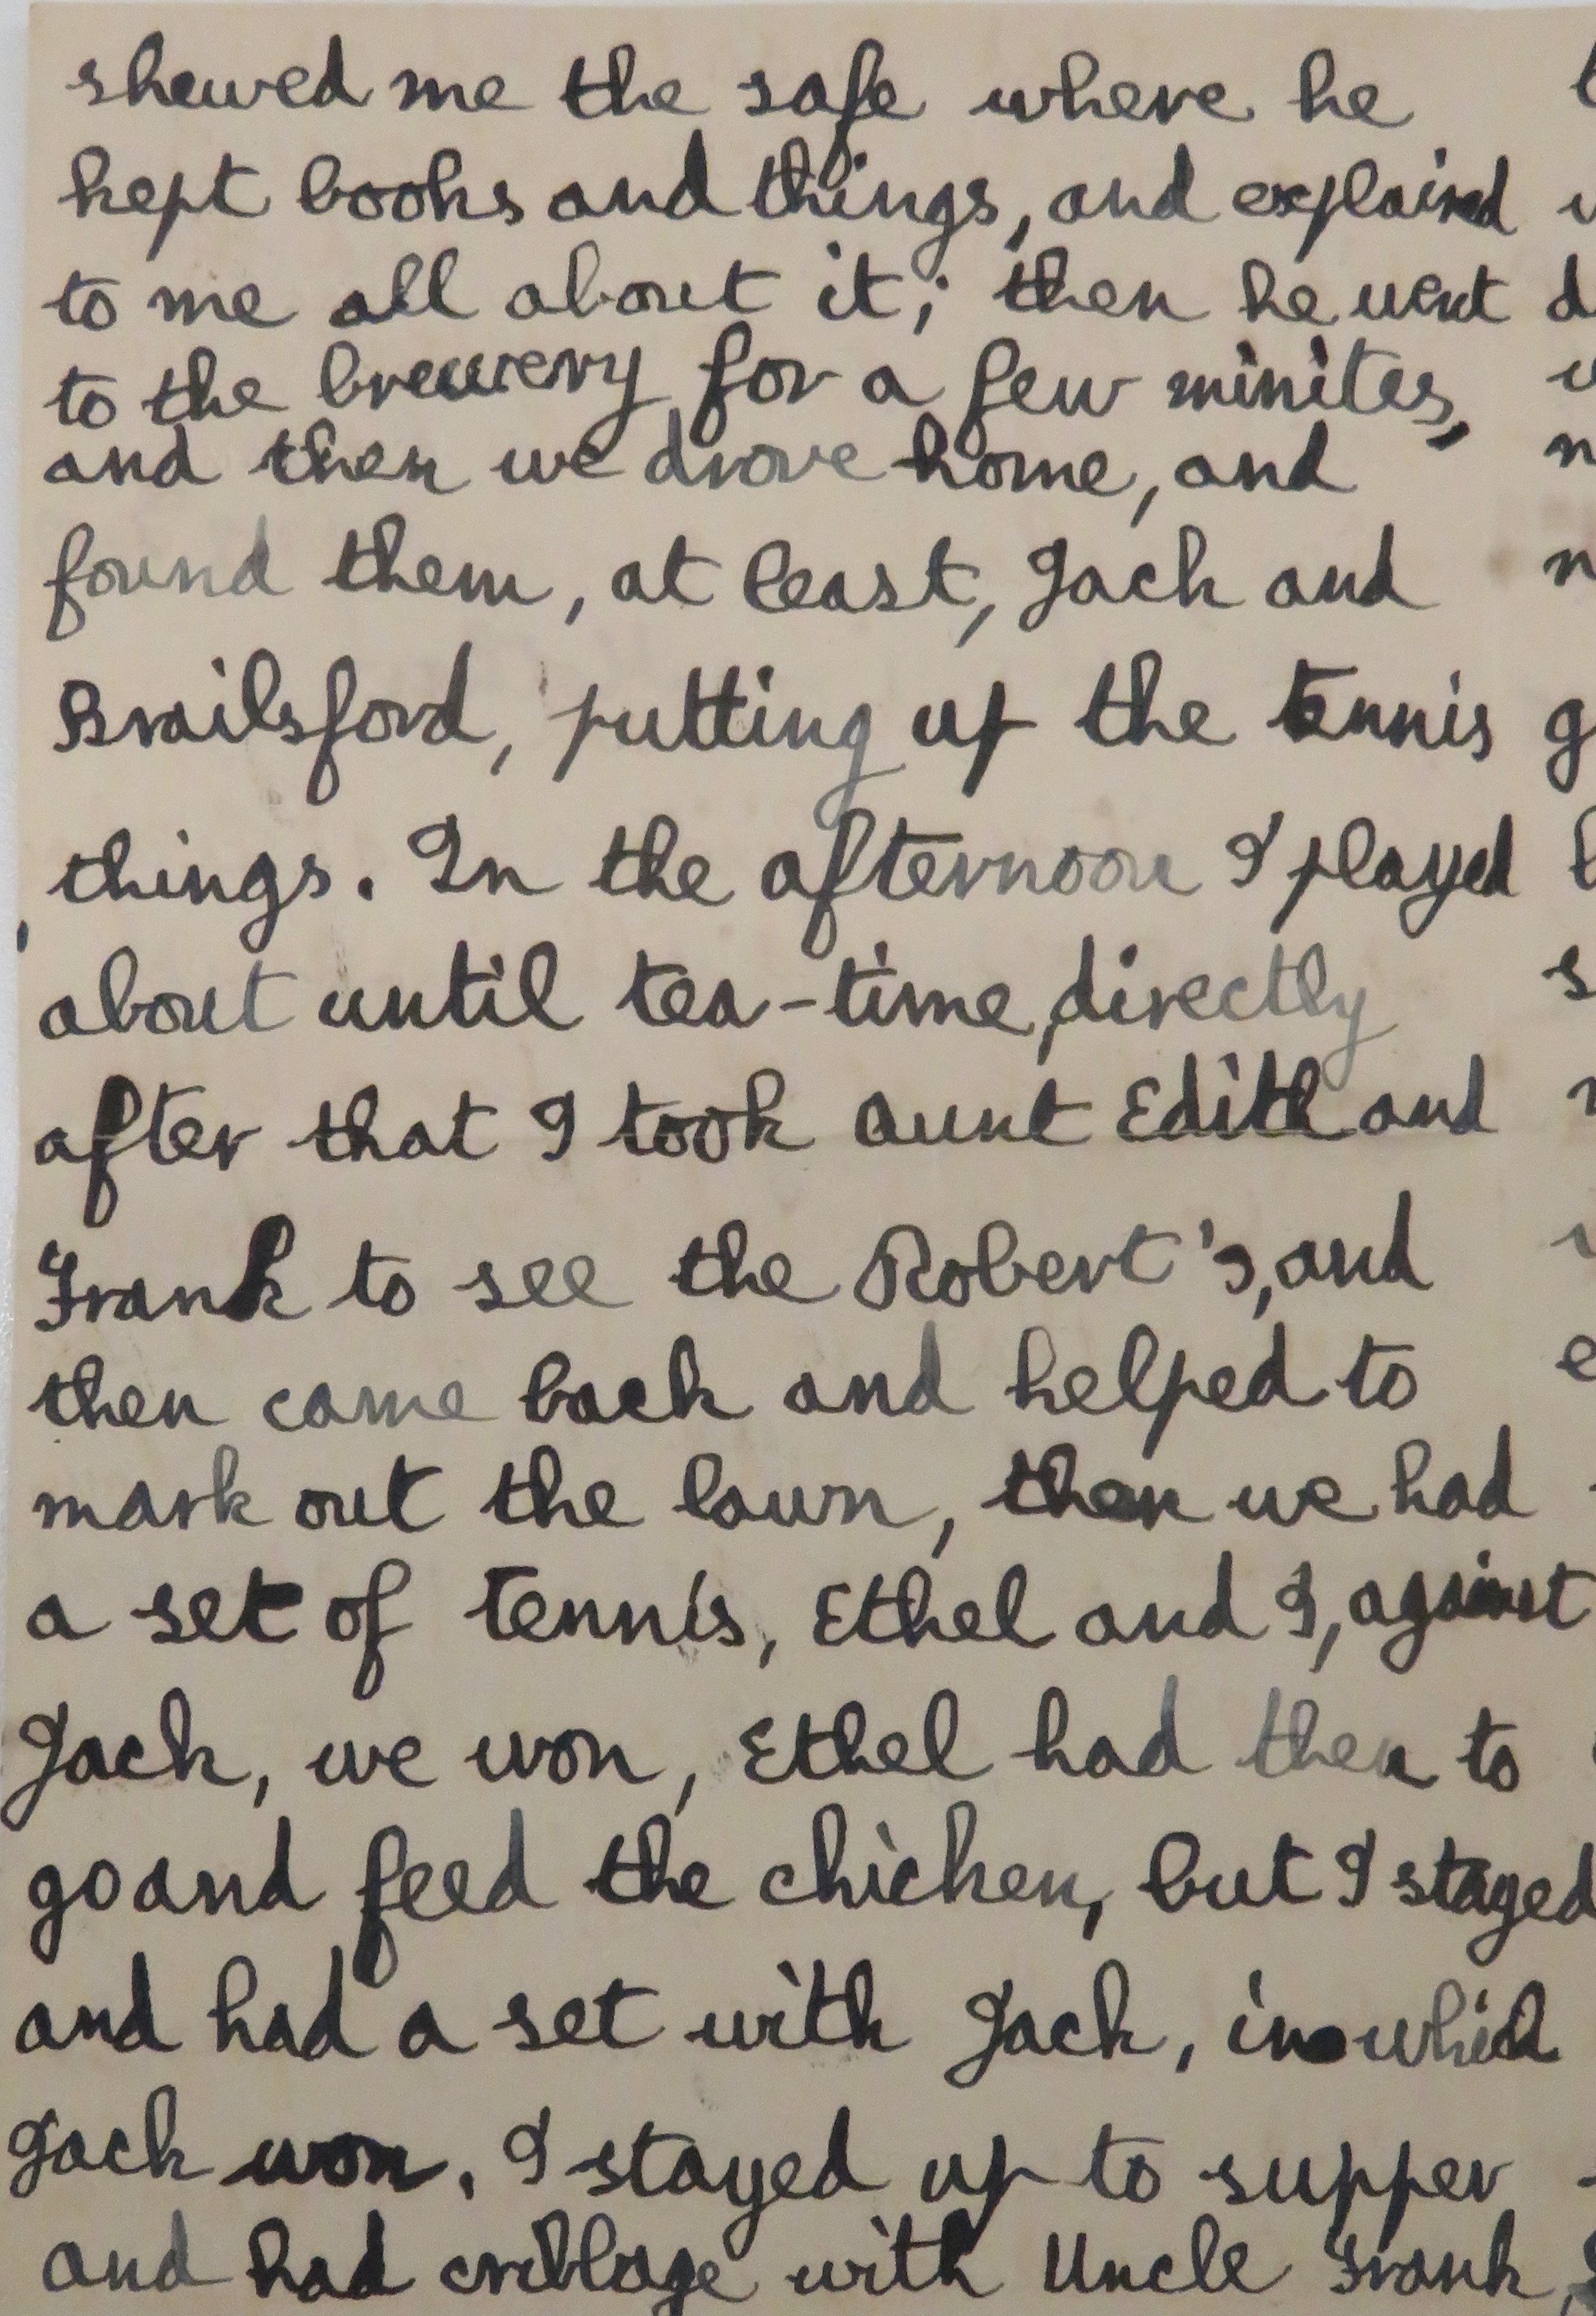 shewed me the safe where he
kept books and things, and explained
to me all about it; then he went
to the brewery for a few minites,
and then we drove home, and
found them, at least, Jack and
Brailsford, putting up the tennis
things. In the afternoon I played
about until tea-time, directly
after that I took aunt Edith and
Frank to see the Robert's, and
then came back and helped to
mark out the lawn, then we had
a set of tennis, Ethel and I, against
Jack, we won, Ethel had then to
go and feed the chicken, but I stayed
and had a set with Jack, in which
Jack won. I stayed up to supper
and had cribbage with Uncle Frank,